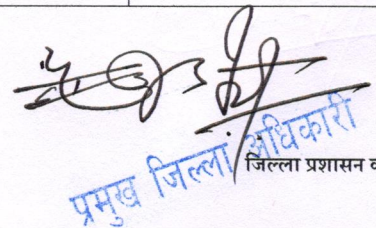 प्रमुख जिल्ला अधिकारी
जिल्ला प्रशासन